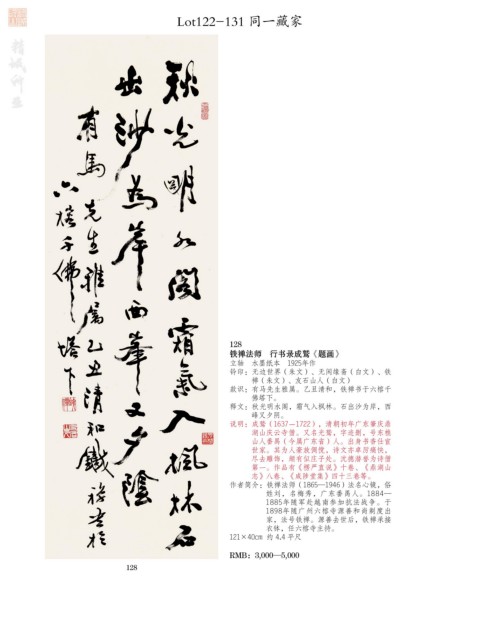 Lot122-131 同一藏家
精诚所至
秋光明水阁霜气入枫林石
出沙为岸西峰又夕阴
有马先生雅属乙丑清和铁禅书于
六榕千佛塔下
128
128
铁禅法师 行书录成鹫《题画》
立轴 水墨纸本 1925年作
钤印：无边世界（朱文）、无闲缘斋（白文）、铁
禅（朱文）、友石山人（白文）
款识：有马先生雅属。乙丑清和，铁禅书于六榕千
佛塔下。
释文：秋光明水阁，霜气入枫林。石出沙为岸，西
峰又夕阴。
说明：成鹫（1637—1722），清朝初年广东肇庆鼎
湖山庆云寺僧。又名光鹫，字迹删，号东樵
山人番禺（今属广东省）人。出身书香仕宦
世家。其为人豪放倜傥，诗文亦卓厉痛快，
尽去雕饰，颇有似庄子处。沈德潜誉为诗僧
第一。作品有《楞严直说》十卷、《鼎湖山
志》八卷、《咸陟堂集》四十三卷等。
作者简介：铁禅法师（1865—1946）法名心镜，俗
姓刘，名梅秀，广东番禺人。1884—
1885年随军赴越南参加抗法战争。于
1898年随广州六榕寺源善和尚剃度出
家，法号铁禅。源善去世后，铁禅承接
衣钵，任六榕寺主持。
121×40cm 约 4.4 平尺
RMB: 3,000—5,000